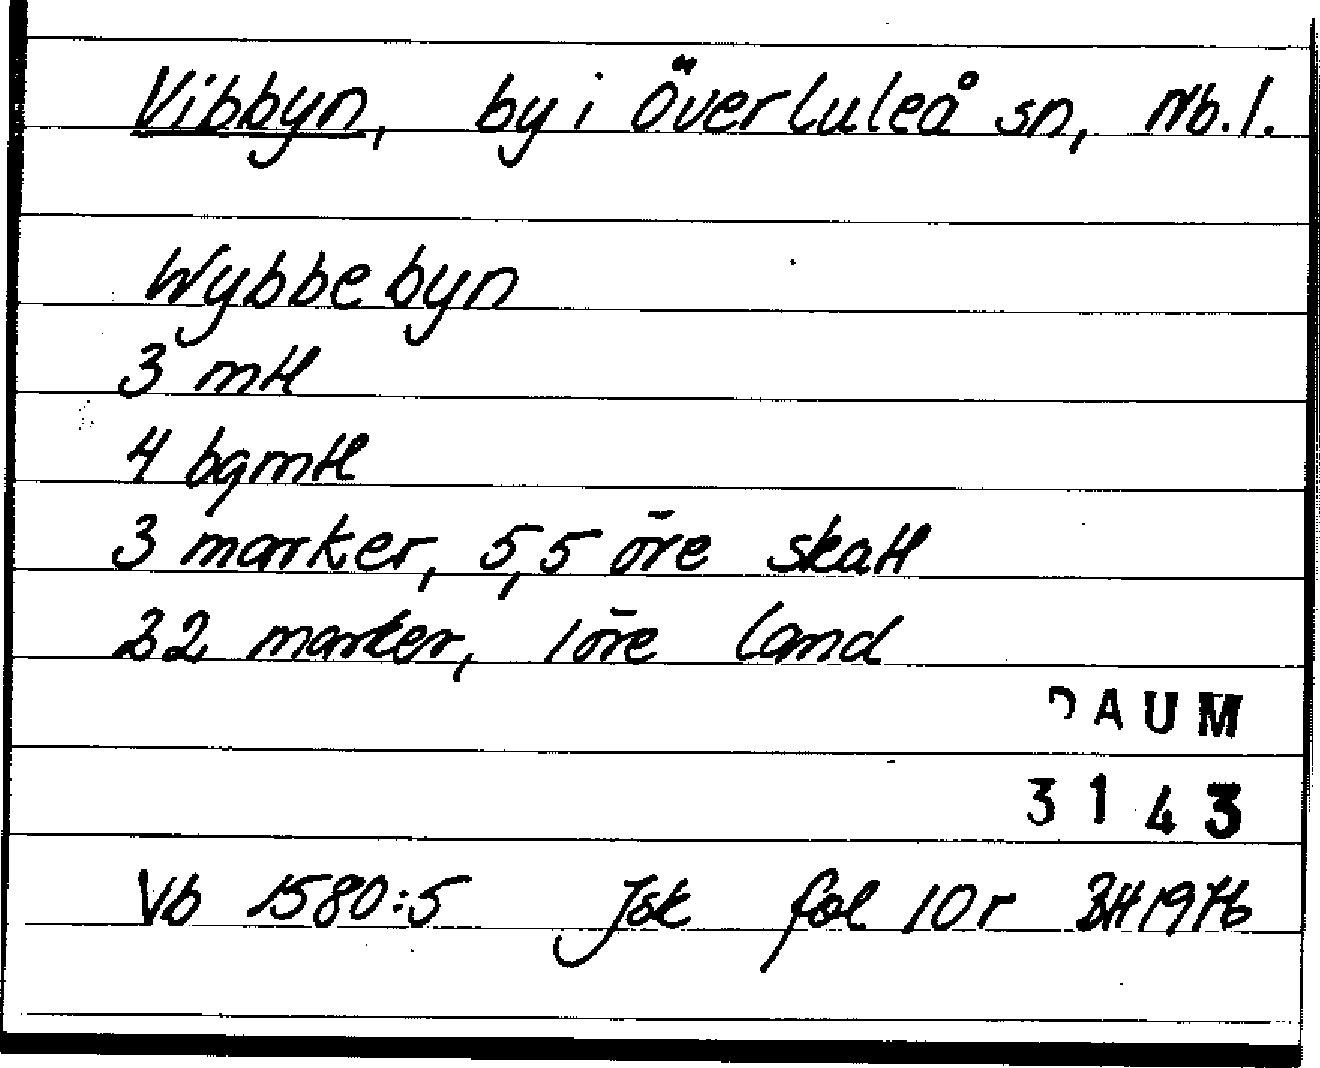 Vibbyn, by i Överluleå sn, Nb. l.
Wybbebyn
3 mtl
4 bgmtl
3 marker, 5,5 öre skatt
22 marker, 1 öre land
DAUM
3143
Vb 1580:5 Jsk fol 10r BH1976